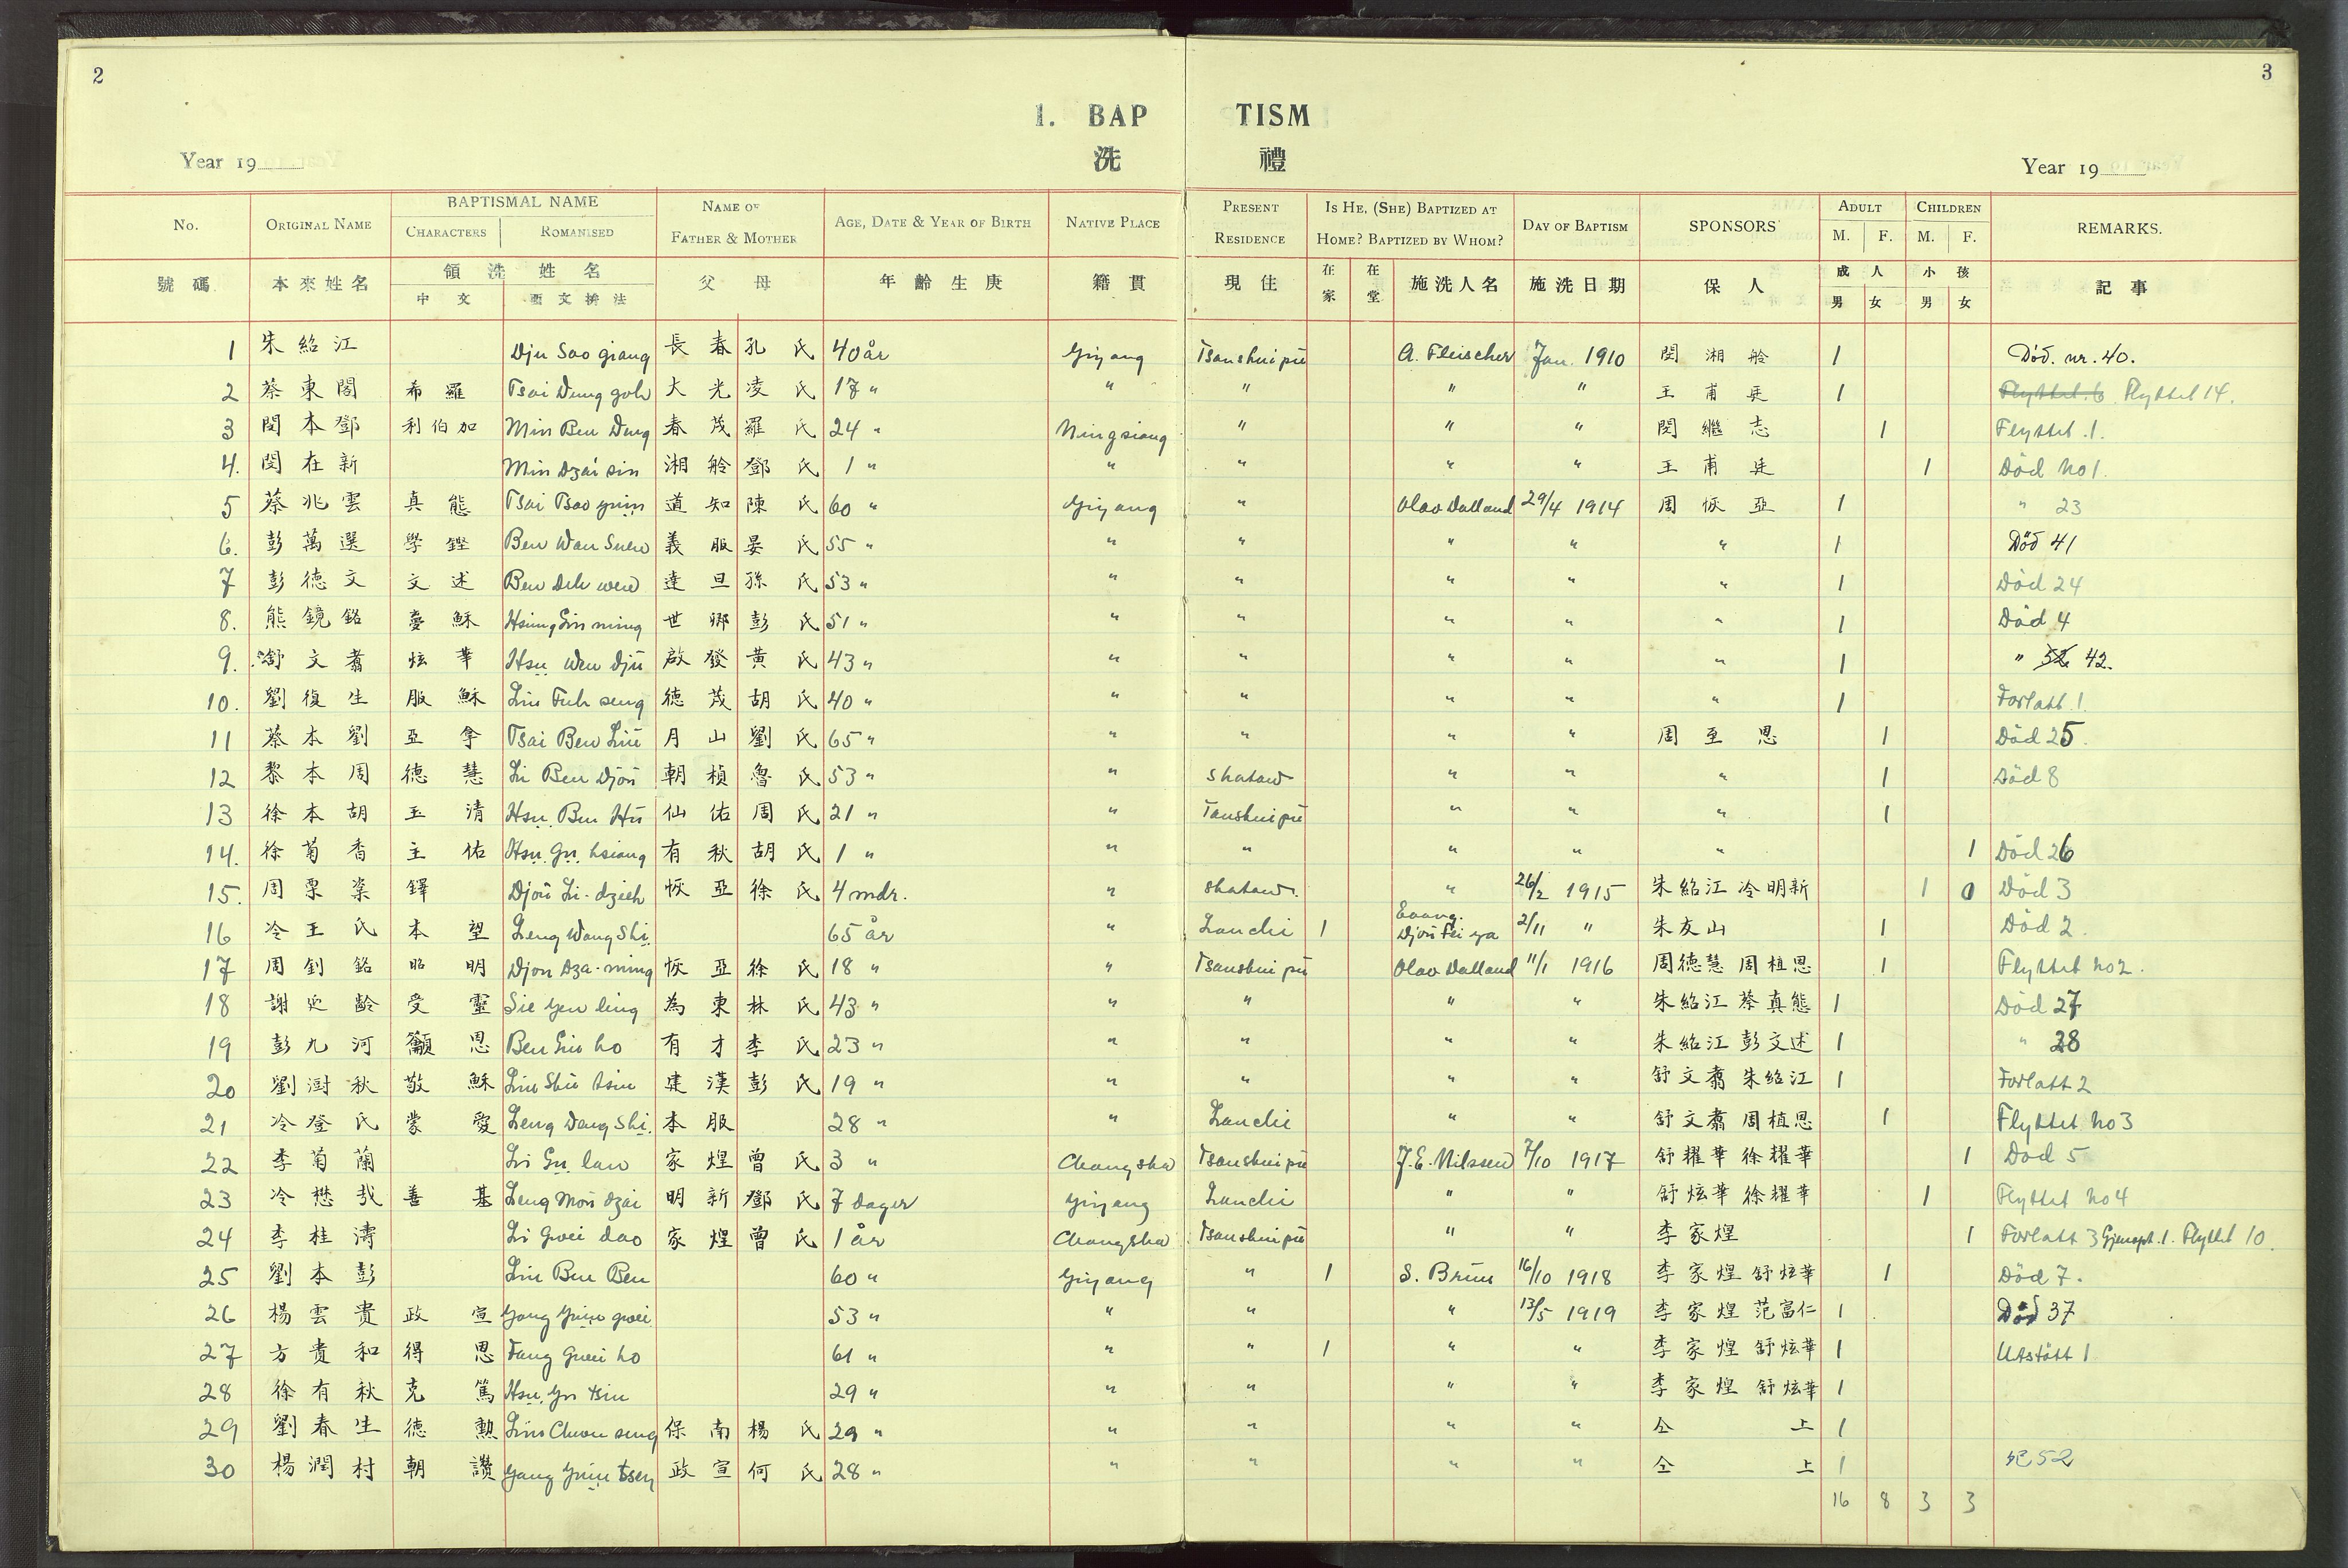 2
3
1. BAP TISM
洗 禮
Year 19
Year 19
No. ORIGINAL NAME BAPTISMAL NAME CHARACTERS ROMANISED NAME OF FATHER & MOTHER AGE, DATE & YEAR OF BIRTH NATIVE PLACE PRESENT RESIDENCE IS HE, (SHE) BAPTIZED AT HOME? BAPTIZED BY WHOM? DAY OF BAPTISM SPONSORS ADULT M. F. CHILDREN M. F. REMARKS.
號碼 本來姓名 領洗姓名 中文 西文拚法 父母 年齡生庚 籍貫 現住 在家 在堂 施洗人名 施洗日期 保人 成人 男 女 小孩 男 女 記事
1 朱紹江 Dju Sao giang 長春 孔氏 40 år Yiyang Tsanshuipu A. Fleischer Jan. 1910 閔湘舲 1 Död. nr. 40.
2 蔡東閣 希羅 Tsai Dung goh 大光 凌氏 17 " " " " " 王甫廷 1 Flyttet 6 Flyttet 14.
3 閔本鄧 利伯加 Min Ben Deng 春茂 羅氏 24 " Ningsiang " " " 閔繼志 1 Flyttet .1.
4. 閔在新 Min Dzai sin 湘舲 鄧氏 1 " " " " " 王甫廷 1 Död No 1.
5 蔡兆雲 真態 Tsai Tsao yuin 道知 陳氏 60 " Yiyang " Olav Dalland 29/4 1914 周恢亞 1 " 23
6. 彭萬選 學鏗 Ben Wan Suen 義服 晏氏 55 " " " " " " 1 Död 41
7 彭德文 文述 Ben Deh wen 達旦 孫氏 53 " " " " " " 1 Död 24
8. 熊鏡銘 憂穌 Hsiung Gin ming 世鄉 彭氏 51 " " " " " " 1 Död 4
9. 舒文翥 炫華 Hsu Wen Djü 啟發 黃氏 43 " " " " " " 1 " 52 42.
10. 劉復生 服穌 Liu Fuh seng 德茂 胡氏 40 " " " " " " 1 Forlatt. 1.
11 蔡本劉 亞拿 Tsai Ben Liu 月山 劉氏 65 " " " " " 周至恩 1 Död 25.
12 黎本周 德慧 Li Ben Djou 朝楨 魯氏 53 " " Shatow " " " 1 Död 8
13 徐本胡 玉清 Hsu Ben Hu 仙佑 周氏 21 " " Tsanshuipu " " " 1
14. 徐菊香 主佑 Hsu Gu hsiang 有秋 胡氏 1 " " " " " " 1 Död 26
15. 周栗 鐸 Djou Li-dzieh 恢亞 徐氏 4 mdr. " Shatow. " 26/2 1915 朱紹江 冷明新 1 0 Död 3
16 冷王氏 本望 Leng Wang Shi 65 år " Lanchi 1 Evang. Djou Fei ya 2/11 " 朱友山 1 Död 2.
17 周釗銘 昭明 Djou Dza-ming 恢亞 徐氏 18 " " Tsanshuipu Olav Dalland 11/1 1916 周德慧 周植恩 1 Flyttet No 2.
18 謝延齡 受靈 Sie Yen ling 為東 林氏 43 " " " " " 朱紹江 蔡真態 1 Död 27
19 彭九河 籲恩 Ben Giu ho 有才 李氏 23 " " " " " 朱紹江 彭文述 1 " 28
20 劉澍秋 敬穌 Liu Shu tsiu 建漢 彭氏 19 " " " " " 舒文翥 朱紹江 1 Forlatt 2
21 冷登氏 蒙愛 Leng Dang Shi. 本服 28 " " Lanchi " " 舒文翥 周植恩 1 Flyttet. No 3
22 李菊蘭 Li Gu lan 家煌 曾氏 3 " Changsha Tsanshuipu J.E. Nilssen 7/10 1917 舒耀華 徐耀華 1 Död 5
23 冷懋哉 善基 Leng Mou dzai 明新 鄧氏 7 dager Yiyang Lanchi " " 舒炫華 徐耀華 1 Flyttet No 4
24 李桂濤 Li Gwei dao 家煌 曾氏 1 år Changsha Tsanshuipu " " 李家煌 1 Forlatt 3 Gjenopt. 1. Flyttet 10.
25 劉本彭 Liu Ben Ben 60 " Yiyang " 1 S. Bruu 16/10 1918 李家煌 舒炫華 1 Död 7.
26 楊雲貴 政宣 Yang Yuin gwei 53 " " " " 13/5 1919 李家煌 范富仁 1 Död 37
27 方貴和 得恩 Fang Gwei ho 61 " " " 1 " " 李家煌 舒炫華 1 Utstött 1
28 徐有秋 克篤 Hsu Yu tsiu 29 " " " " " 李家煌 舒炫華 1
29 劉春生 德勳 Liu Chuen seng 保南 楊氏 29 " " " " " 仝上 1
30 楊潤村 朝讚 Yang Yuin tsen 政宣 何氏 28 " " " " " 仝上 1 52
16 8 3 3